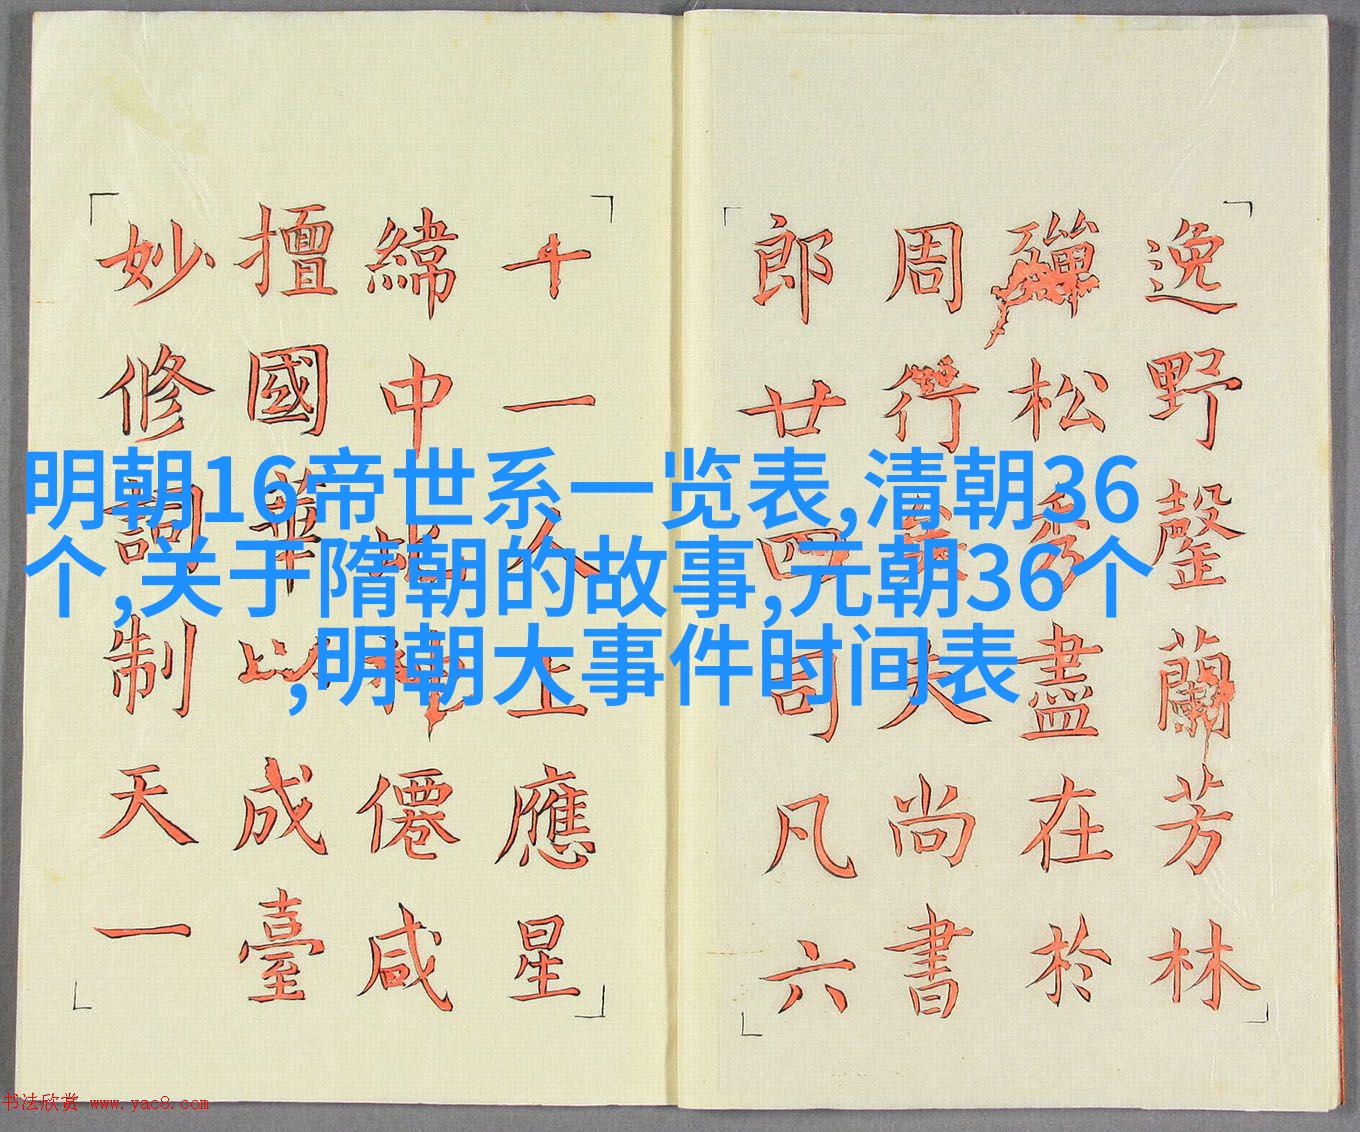 逸野罄蘭芳林
殫松秀盡在於
周行矣夫尚書
郎廿四司凡六
十一人上應星
緯中比神僊咸
擅國華以成臺
妙修詞制天一
明朝16帝世系一览表,清朝36
个,关于隋朝的故事,元朝36个
,明朝大事件时间表
书法欣赏 www.yac8.com